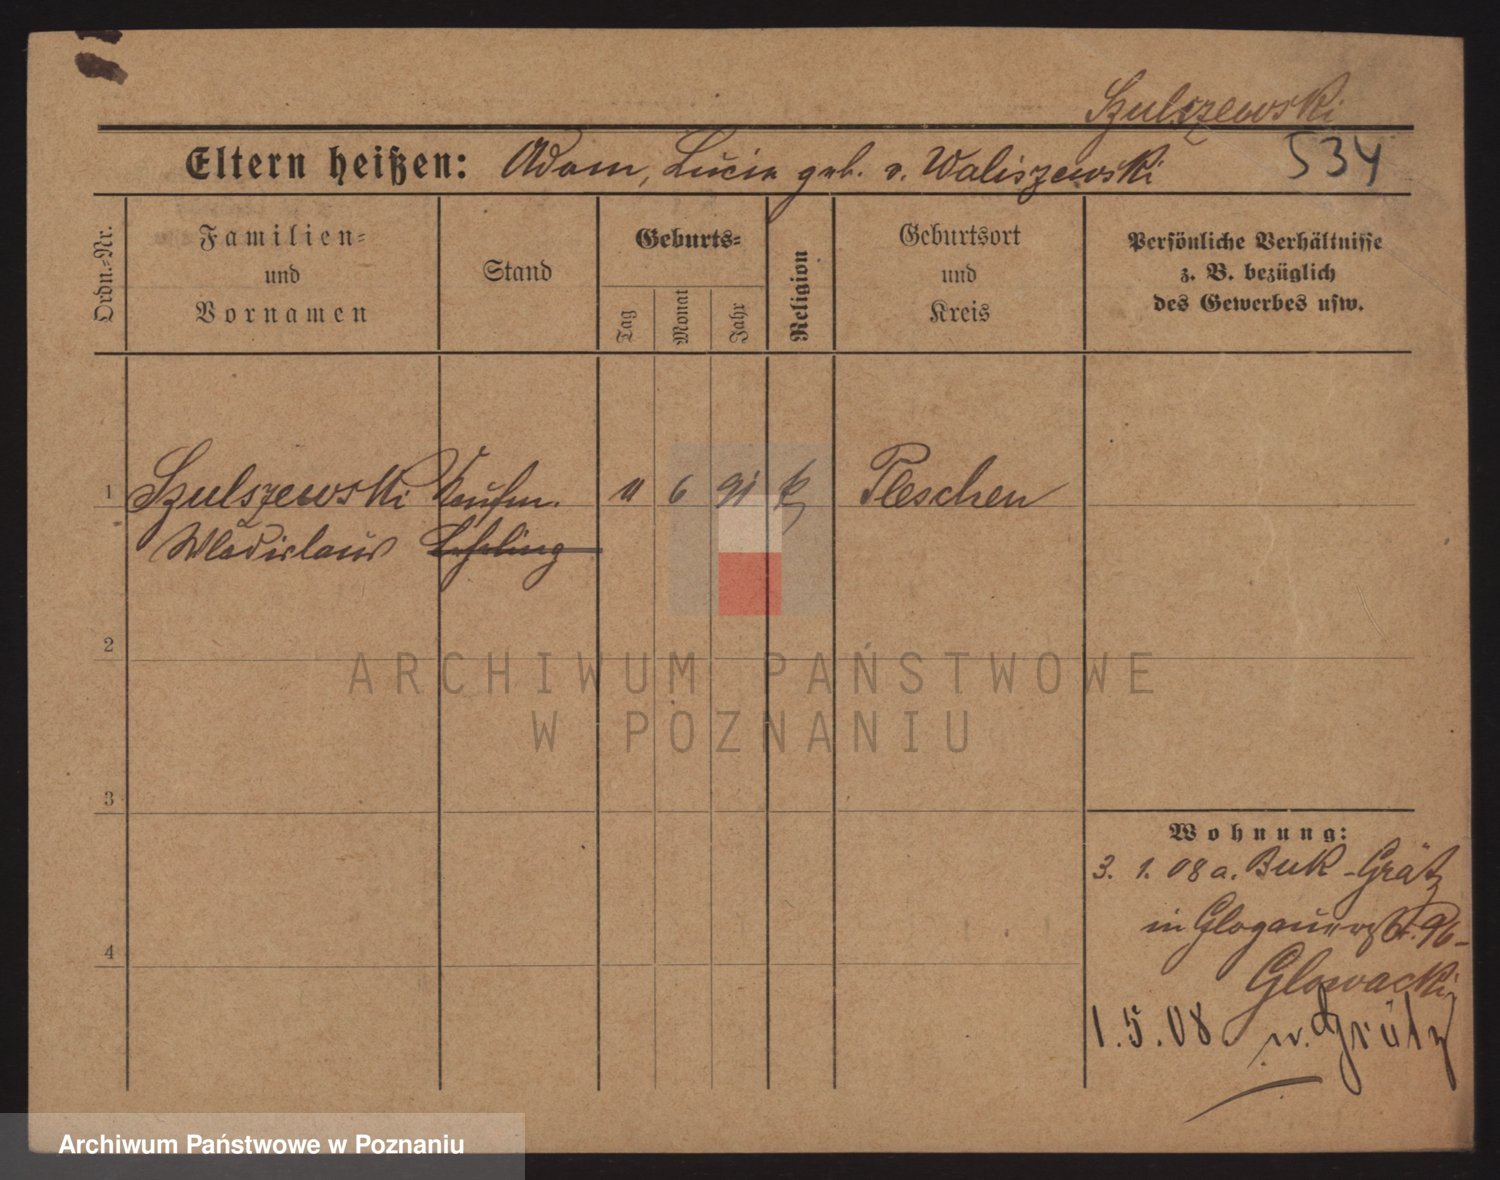 Szulszewski
Eltern heißen: Adam, Lucia geb. v. Waliszewski 534
Ordn.-Nr.
Familien-
und
Vornamen
Stand
Geburts-
Tag
Monat
Jahr
Religion
Geburtsort
und
Kreis
Persönliche Verhältnisse
z. B. bezüglich
des Gewerbes usw.
1 Szulszewski Kaufm. 11 6 91 k Pleschen
Wladislaus Lehrling
2
3
4
Wohnung:
3. 1. 08 a. Buk-Grätz
in Glogauerstr. 96
Glowacki
1.5.08 n. Grätz
ARCHIWUM PAŃSTWOWE
W POZNANIU
Archiwum Państwowe w Poznaniu